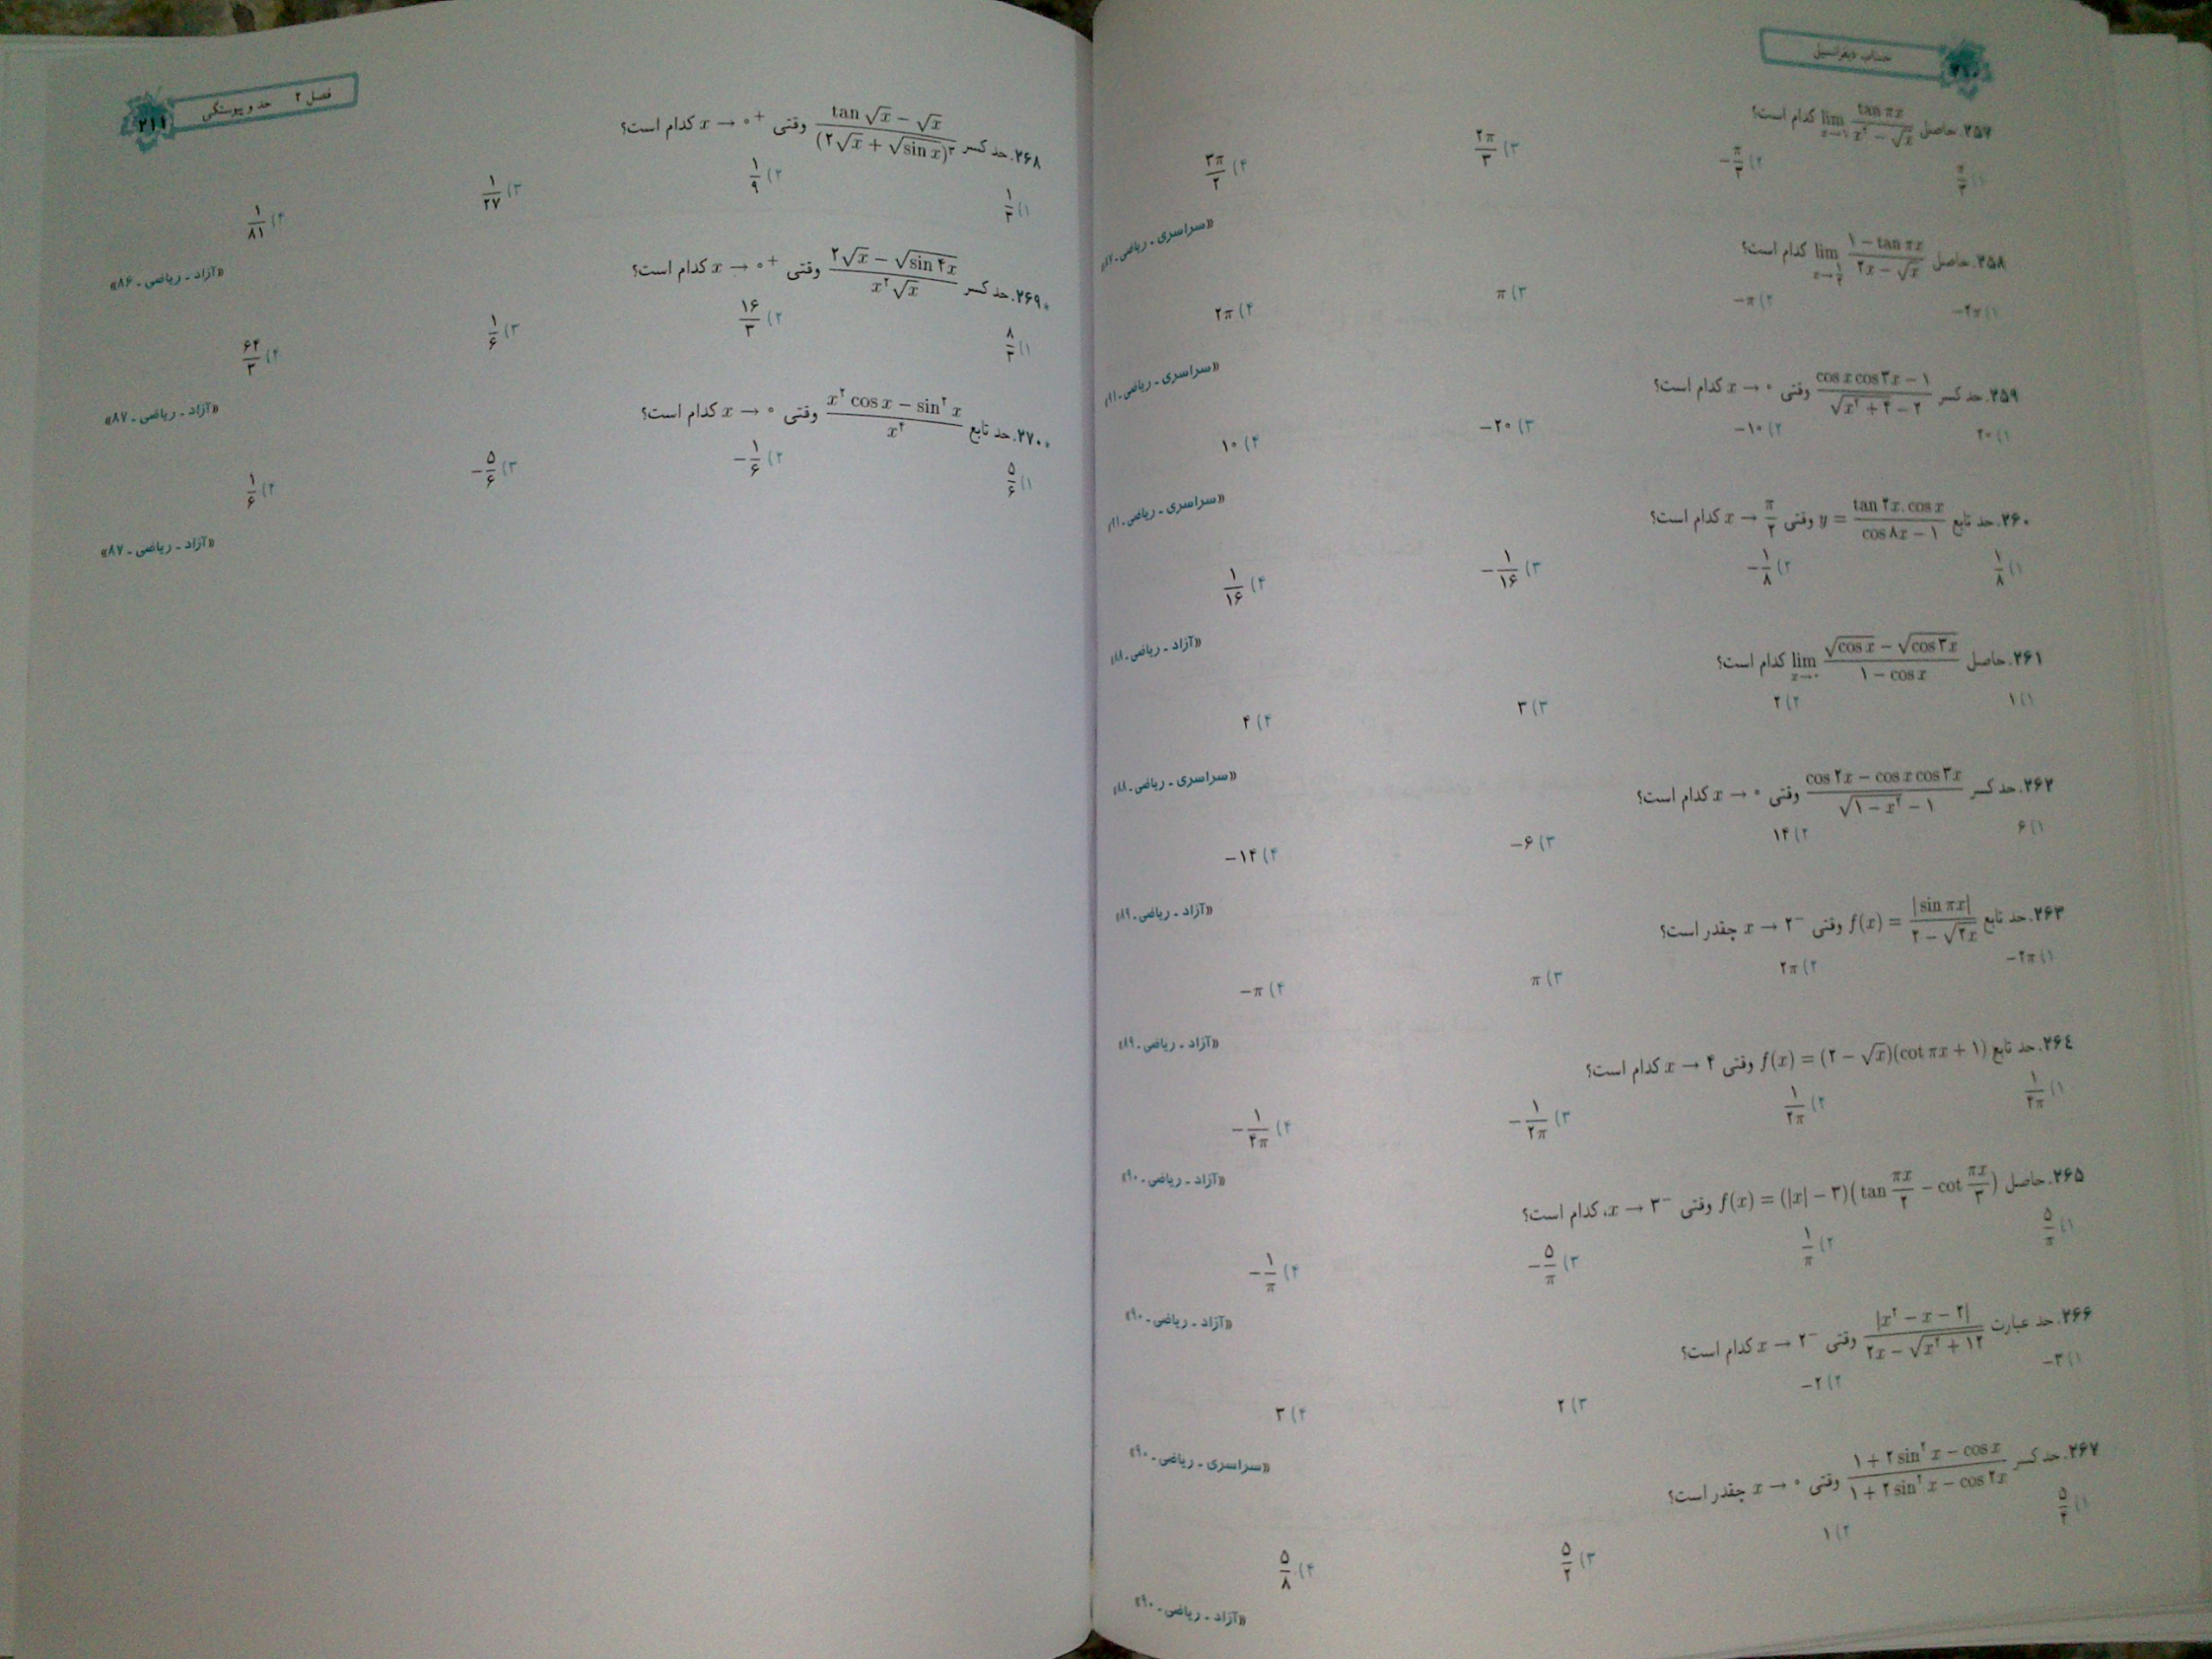 حساب دیفرانسیل
۲۵۷. حاصل lim tan πx / x² − √x کدام است؟
۲) −π/۳ ۳) ۲π/۳ ۴) ۳π/۲
«سراسری ـ ریاضی ـ ۸۷»
۲۵۸. حاصل lim ۱ − tan πx / ۲x − √x کدام است؟
۱) −۲π ۲) −π ۳) π ۴) ۲π
«سراسری ـ ریاضی ـ ۹۱»
۲۵۹. حد کسر cos x cos ۳x − ۱ / √x² + ۴ − ۲ وقتی x → ۰ کدام است؟
۱) ۲۰ ۲) −۱۰ ۳) −۲۰ ۴) ۱۰
«سراسری ـ ریاضی ـ ۹۱»
۲۶۰. حد تابع y = tan ۲x . cos x / cos ۸x − ۱ وقتی x → π/۲ کدام است؟
۱) ۱/۸ ۲) −۱/۸ ۳) −۱/۱۶ ۴) ۱/۱۶
«آزاد ـ ریاضی ـ ۸۸»
۲۶۱. حاصل lim x→۰ √cos x − √cos ۳x / ۱ − cos x کدام است؟
۱) ۱ ۲) ۲ ۳) ۳ ۴) ۴
«سراسری ـ ریاضی ـ ۸۸»
۲۶۲. حد کسر cos ۲x − cos x cos ۳x / √۱ − x² − ۱ وقتی x → ۰ کدام است؟
۱) ۶ ۲) ۱۴ ۳) −۶ ۴) −۱۴
«آزاد ـ ریاضی ـ ۸۹»
۲۶۳. حد تابع f(x) = |sin πx| / ۲ − √۲x وقتی x → ۲⁻ چقدر است؟
۱) −۲π ۲) ۲π ۳) π ۴) −π
«آزاد ـ ریاضی ـ ۸۹»
۲۶٤. حد تابع f(x) = (۲ − √x)(cot πx + ۱) وقتی x → ۴ کدام است؟
۱) ۱/۴π ۲) ۱/۲π ۳) −۱/۲π ۴) −۱/۴π
«آزاد ـ ریاضی ـ ۹۰»
۲۶۵. حاصل f(x) = (|x| − ۳)(tan πx/۲ − cot πx/۳) وقتی x → ۳⁻، کدام است؟
۱) ۵/π ۲) ۱/π ۳) −۵/π ۴) −۱/π
«آزاد ـ ریاضی ـ ۹۰»
۲۶۶. حد عبارت |x² − x − ۲| / ۲x − √x² + ۱۲ وقتی x → ۲⁻ کدام است؟
۱) −۳ ۲) −۲ ۳) ۲ ۴) ۳
«سراسری ـ ریاضی ـ ۹۰»
۲۶۷. حد کسر ۱ + ۲ sin² x − cos x / ۱ + ۲ sin² x − cos ۲x وقتی x → ۰ چقدر است؟
۱) ۵/۴ ۲) ۱ ۳) ۵/۲ ۴) ۵/۸
«آزاد ـ ریاضی ـ ۹۰»
فصل ۲ حد و پیوستگی
۲۱۱
۲۶۸. حد کسر tan √x − √x / (۲√x + √sin x)³ وقتی x → ۰⁺ کدام است؟
۱) ۱/۳ ۲) ۱/۹ ۳) ۱/۲۷ ۴) ۱/۸۱
«آزاد ـ ریاضی ـ ۸۶»
*۲۶۹. حد کسر ۲√x − √sin ۴x / x²√x وقتی x → ۰⁺ کدام است؟
۱) ۸/۳ ۲) ۱۶/۳ ۳) ۱/۶ ۴) ۶۴/۳
«آزاد ـ ریاضی ـ ۸۷»
*۲۷۰. حد تابع x² cos x − sin² x / x⁴ وقتی x → ۰ کدام است؟
۱) ۵/۶ ۲) −۱/۶ ۳) −۵/۶ ۴) ۱/۶
«آزاد ـ ریاضی ـ ۸۷»